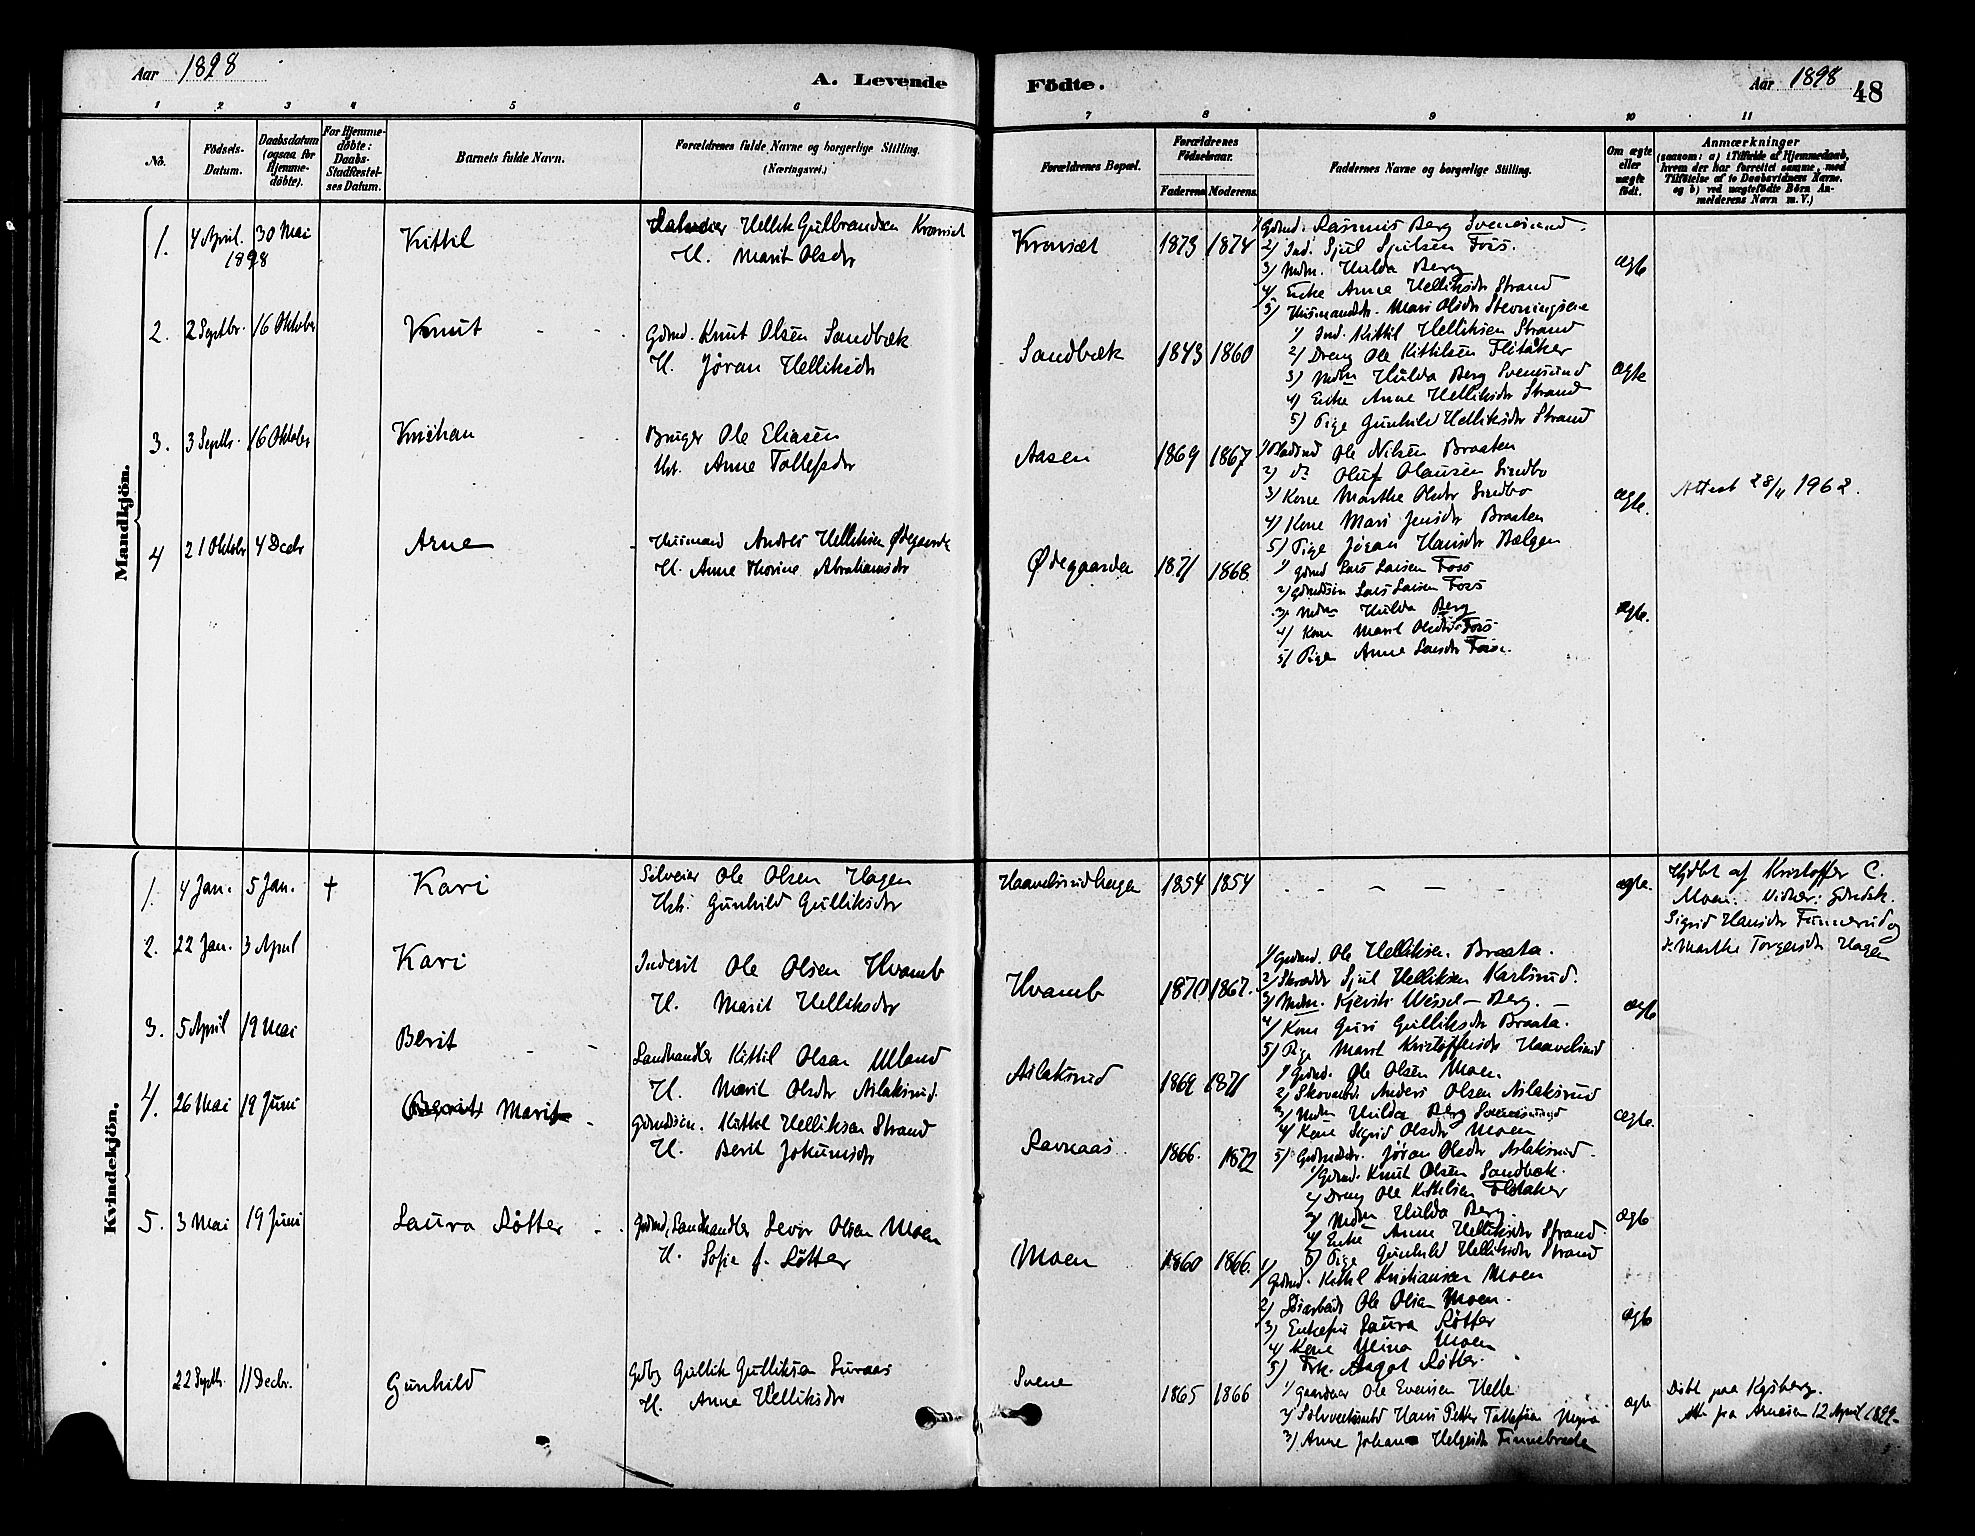 Aar 1898
A. Levende
Födte.
Aar 1898
48
1 2 3 4 5 6 7 8 9 10 11
No.
Födsels-Datum.
Daabsdatum (ogsaa for Hjemme-döbte).
For Hjemme-döbte: Daabs-Stadfæstel-ses Datum.
Barnets fulde Navn.
Forældrenes fulde Navne og borgerlige Stilling. (Næringsvei.)
Forældrenes Bopæl.
Forældrenes Födselsaar.
Faderens Moderens
Faddernes Navne og borgerlige Stilling.
Om ægte eller uægte födt.
Anmærkninger
(saasom: a) i Tilfælde af Hjemmedaab, hvem der har forrettet samme, med Tilföielse af to Daabsvidners Navne, og b) ved uægtefödte Börn An-melderens Navn m. V.)
Mandkjön.
1. 4 April 1898 30 Mai Kittil
Hellik Gulbrandsen Kravset
H. Marit Olsdr
Kravset 1873 1874
1) Gdmd. Rasmus Berg Svenesund.
2) Ind. Sjul Sjulsen Foss.
3) Mdm. Hulda Berg
4) Enke Anne Helliksdr Strand
5) Husmandsdr. Mari Olsdr
ægte
2. 2 Septbr. 16 Oktober Knut
Gdmd. Knut Olsen Sandbæk
H. Jøran Helliksdr
Sandbæk 1843 1860
1) Ind. Kittil Helliksen Strand
2) Dreng Ole Kittilsen Flitaker
3) Mdm Hulda Berg Svenesund
4) Enke Anne Helliksdr Strand
5) Pige Gunhild Helliksdr Strand
ægte
3. 3 Septbr. 16 Oktober Kristian
Bruger Ole Eliasen
Hst. Anne Tollefsdr
Aasen 1869 1867
1) Pladsmd Ole Nilsen Braaten
2) do Oluf Olausen Sindbo
3) Kone Marthe Olsdr Sindbo
4) Kone Mari Jensdr Braaten
5) Pige Jøran Hansdr Bælgen
ægte.
Attest 28/11 1962.
4 21 Oktober 4 Decbr Arne
Husmand Andres Helliksen Ødegaarde
H. Anne Thorine Abrahamsdr
Ødegaarden 1871 1868
1) Gdmd Lars Larsen Foss
2) Gdmdsøn Lars Larsen Foss
3) Mdm Hulda Berg
4) Kone Marit Olsdr Foss
5) Pige Anne Larsdr Foss.
ægte.
Kvindekjön.
1. 4 Jan. 5 Jan. + Kari
Selveier Ole Olsen Hagen
Hst. Gunhild Gulliksdr
Haavelsrudhagen 1854 1854
ægte.
Hjdbt af Kristoffer C. Moen. Vidner: Gdmdsk.
Sigrid Hansdr Finnerud og
do Marthe Torgersdr Hagen
2. 22 Jan. 3 April Kari
Inderst Ole Olsen Hvamb
H. Marit Helliksdr
Hvamb 1870 1867.
1) Gdmd. Ole Helliksen Braata.
2) Skrædder Sjul Helliksen Karlsrud.
3) Mdm. Kjersti Wessel-Berg.
4) Kone Guri Gulliksdr Braata.
5) Pige Marit Kristoffersdr Haavelsrud
ægte
3. 5 April 19 Mai Berit
Landhandler Kittil Olsen Ulland
H. Marit Olsdr Aslaksrud.
Aslaksrud 1869 1871
1) Gdmd. Ole Olsen Moen.
2) Anders Olsen Aslaksrud
3) Mdm Hulda Berg Svenesund
4) Kone Sigrid Olsdr Moen
5) Gdmdsdr. Jøran Olsdr Aslaksrud.
ægte.
4. 26 Mai 19 Juni (Berit) Marit
Gdmdsøn. Kittil Helliksen Strand
H. Berit Jokumsdr
Ravnaas 1866. 1872
1) Gdmd. Knut Olsen Sandbæk.
2) Dreng Ole Kittilsen Flitaker
3) Mdm Hulda Berg.
4) Enke Anne Helliksdr Strand
5) Pige Gunhild Helliksdr Strand
ægte
5. 3 Mai 19 Juni Laura Røtter
Gdmd, Landhandler Sevor Olsen Moen
H. Sofie f. Røtter
Moen 1860 1866.
1) Gdmd. Kittil Kristiansen Moen
2) Ole Olsen Moen.
3) Enkefru Laura Røtter
4) Kone Moen
5) Frk. Aagot Røtter.
ægte
22 Septbr. 11 Decbr. Gunhild
Gdbr Gullik Gulliksen Suraas
H. Anne Helliksdr
Svene 1865 1866
1) Gaardeier Ole Evensen Helle
2) Hans Petter Tollefsen Myra
3) Anne Johane Helgesdr Finnebraaten
ægte
Døbt paa Kgsberg.
Att. fra 12 April 1899.